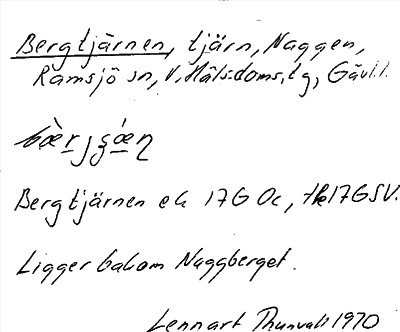 Bergtjärnen, tjärn, Naggen,
Ramsjö sn, V. Häls. doms. tg, Gävl. l.
Bergtjärnen ek 17G Oc, 17G SV.
Ligger bakom Naggberget.
Lennart Thunvall 1970